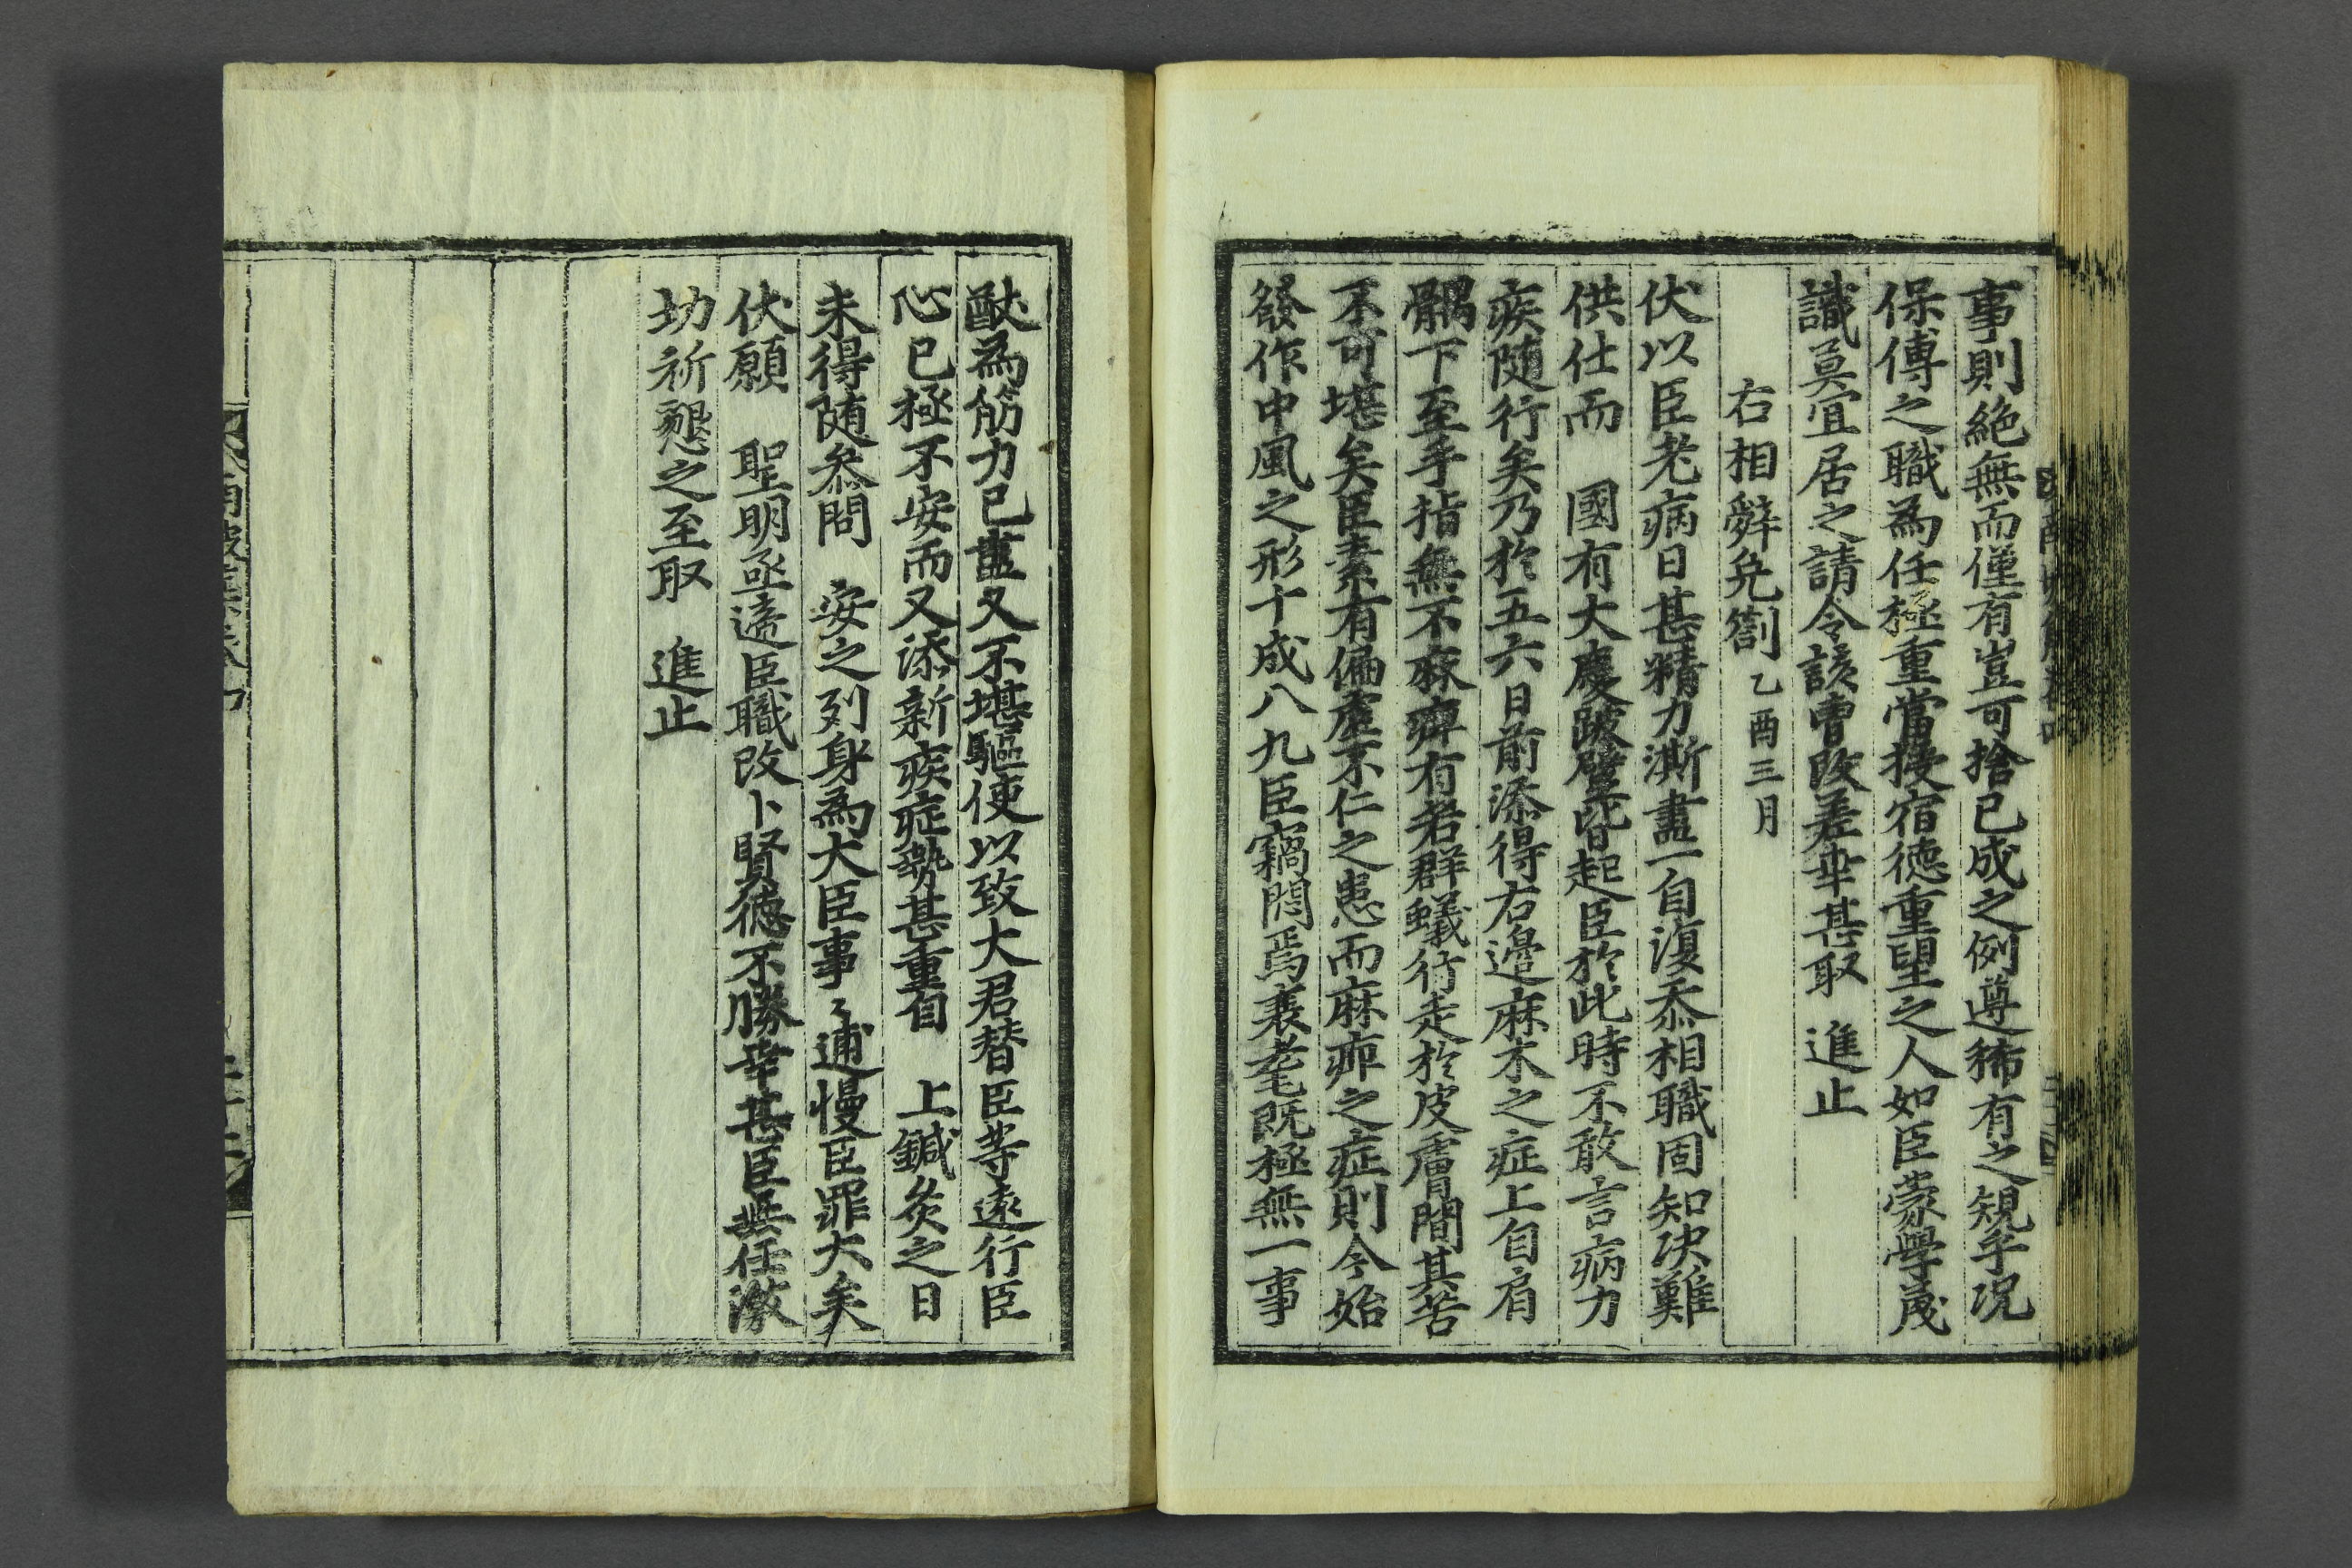 事則絶無而僅有豈可捨已成之例遵稀有之規乎况
保傅之職爲任極重當授宿德重望之人如臣蒙學蔑
識莫宜居之請令該曹改差幸甚取 進止
右相辭免劄 乙酉三月
伏以臣老病日甚精力澌盡一自復忝相職固知决難
供仕而 國有大慶跛躄皆起臣於此時不敢言病力
疾随行矣乃於五六日前添得右邊麻木之症上自肩
髃下至手指無不麻痹有若群蟻行走於皮膚間其苦
不可堪矣臣素有偏虛不仁之患而麻痹之症則今始
發作中風之形十成八九臣竊悶焉衰耄既極無一事
猷為筋力已盡又不堪驅使以致大君替臣等遠行臣
心已極不安而又添新疾症勢甚重自 上鍼灸之日
未得随叅問 安之列身為大臣事〻逋慢臣罪大矣
伏願 聖明亟遞臣職改卜賢德不勝幸甚臣無任激
切祈懇之至取 進止